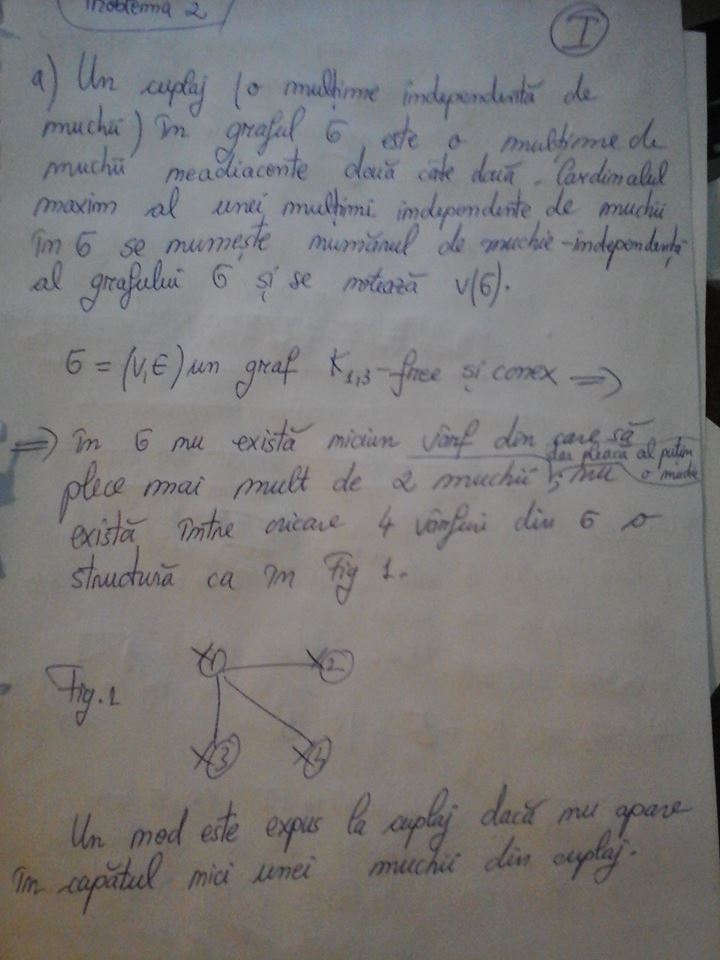 Problema 2
I
a) Un cuplaj (o mulțime independentă de
muchii) în graful G este o mulțime de
muchii neadiacente două câte două. Cardinalul
maxim al unei mulțimi independente de muchii
în G se numește numărul de muchie-independență
al grafului G și se notează ν(G).
G = (V,E) un graf K1,3-free și conex =>
=> în G nu există niciun vârf din care să
dar pleacă al puțin
plece mai mult de 2 muchii ; nu o muchie
există între oricare 4 vârfuri din G o
structură ca în Fig 1.
Fig.1
X1 X2
X3 X4
Un nod este expus la cuplaj dacă nu apare
în capătul nici unei muchii din cuplaj.